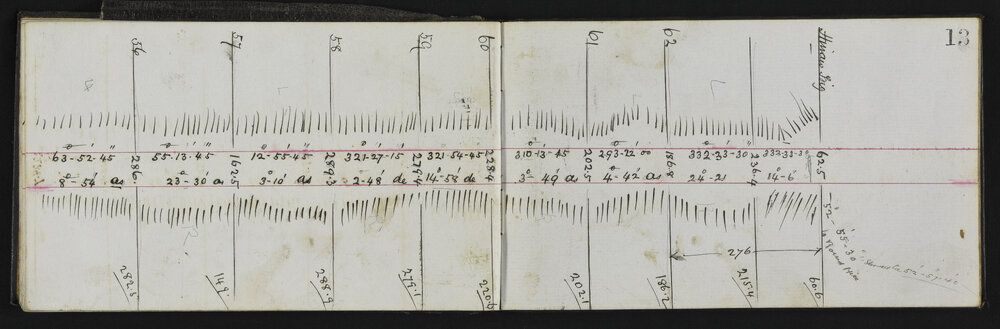 56 57 58 59 60 61 62 Hinau Trig 13
63-52-45 55-13-45 12-55-45 321-27-15 321-54-45 310-13-45 293-22-00 332-33-30 332-33-30
286. 162.5 289.3 279.4 228.4 202.5 186.8 236.4 62.5
8°-54' as 23°-30' as 3-10' as 2-48' de 14°-58' de 3°-49' as 4°-42' as 24°-21 14-6
-52°-55'-30"
276
282.5 149. 288.9 279.1 220.6 202.1 186.2 215.4 60.6